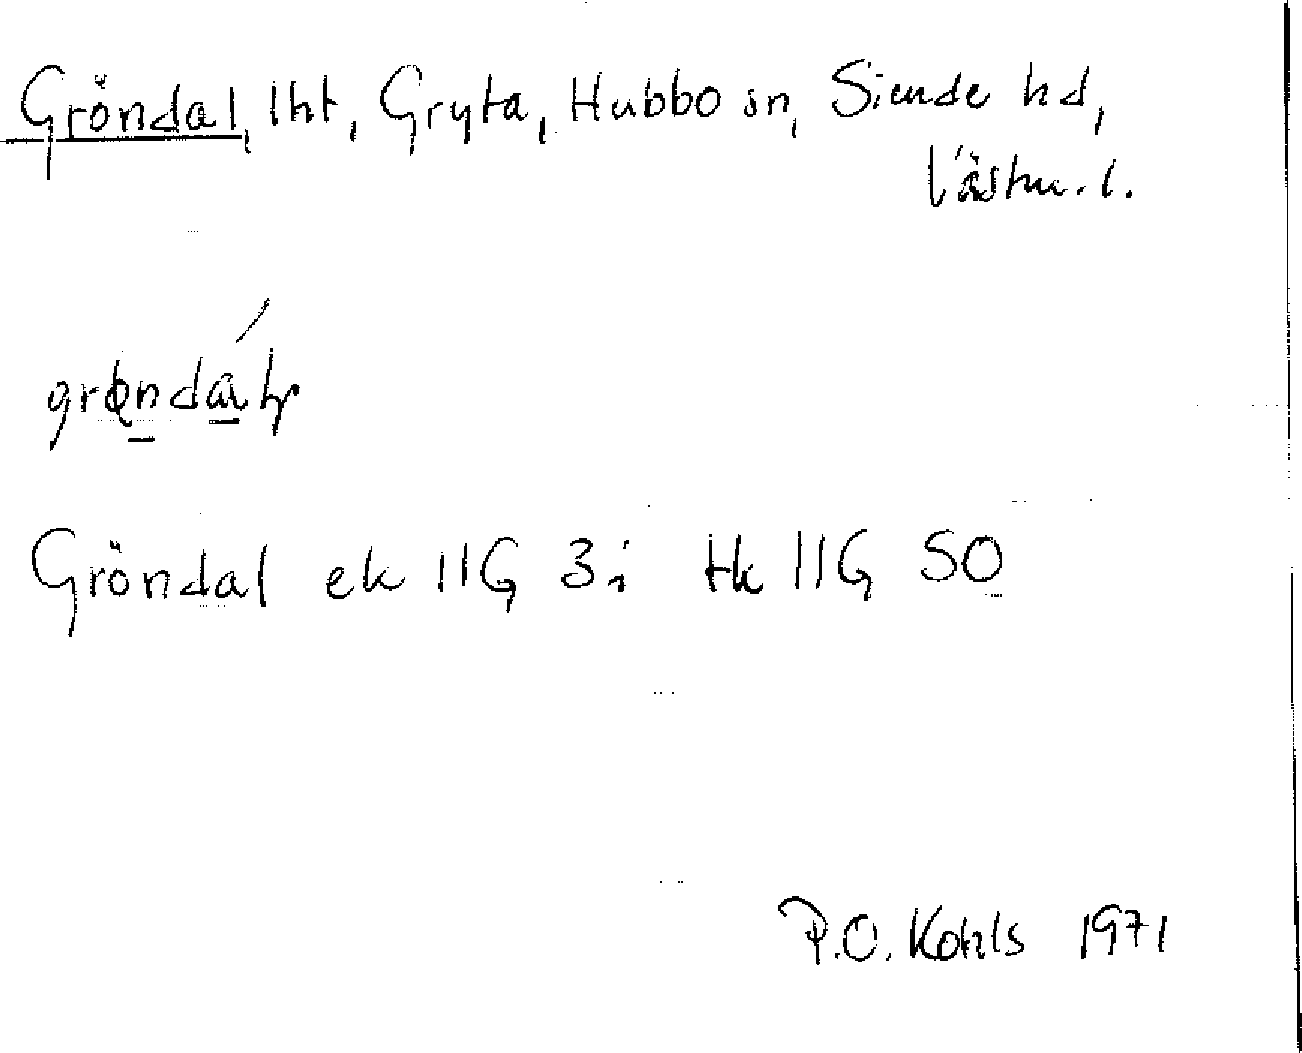 Gröndal, lht, Gryta, Hubbo sn, Siende hd,
Västm. l.
Gröndal ek 11G 3i tk 11G SO
P.O. Kohls 1971